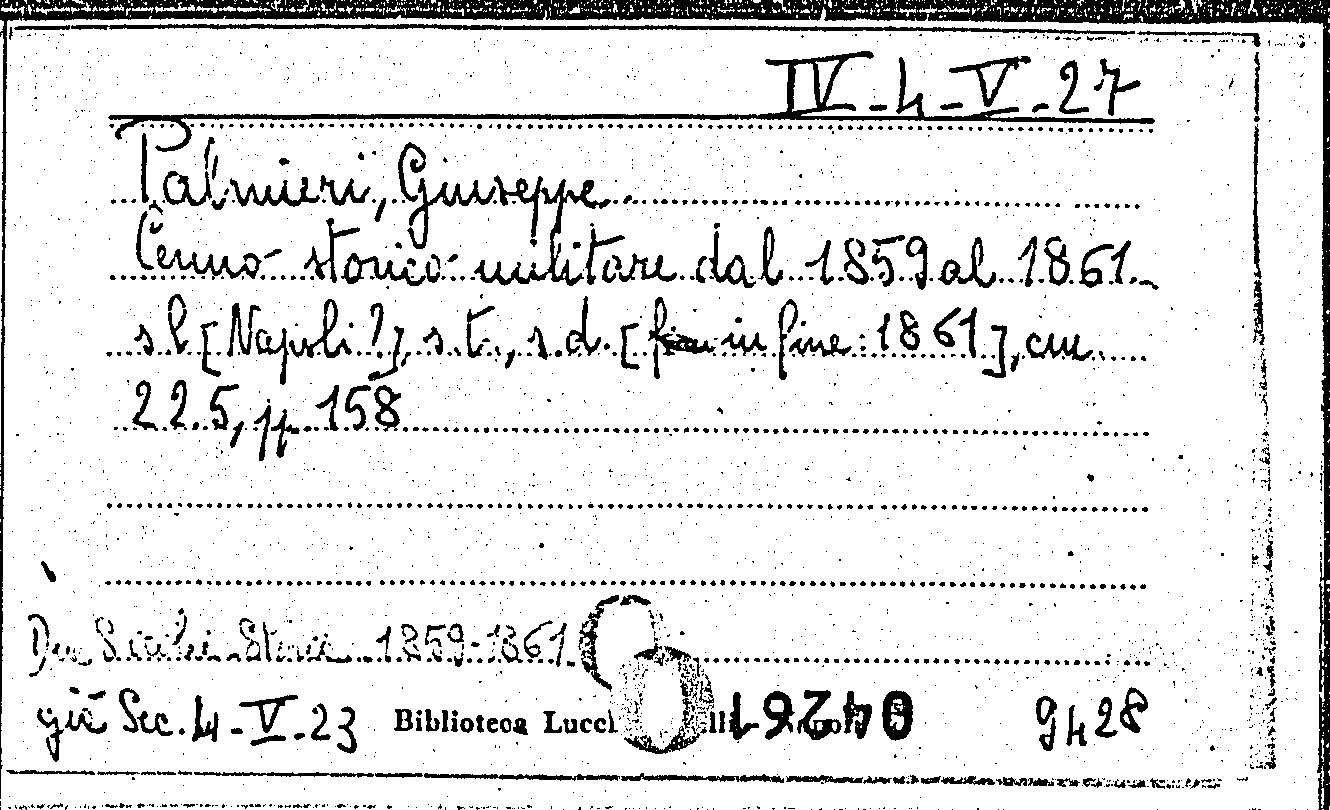 IV-4-V-27
Palmieri, Giuseppe.
Cenno storico militare dal 1859 al 1861.
sl [Napoli?], s.t., s.d. [in fine: 1861], cm
22.5, pp. 158
Due Sicilie Storia 1859-1861
già Sec. 4-V-23 Biblioteca 04261 9428